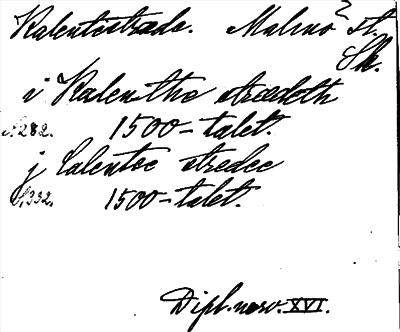 Kalentestræde. Malmö? st.
Sk.
i Kalenthe strædeth
S. 282. 1500-talet.
j Calentoe stredee
S. 332. 1500-talet.
Dipl. norv. XVI.